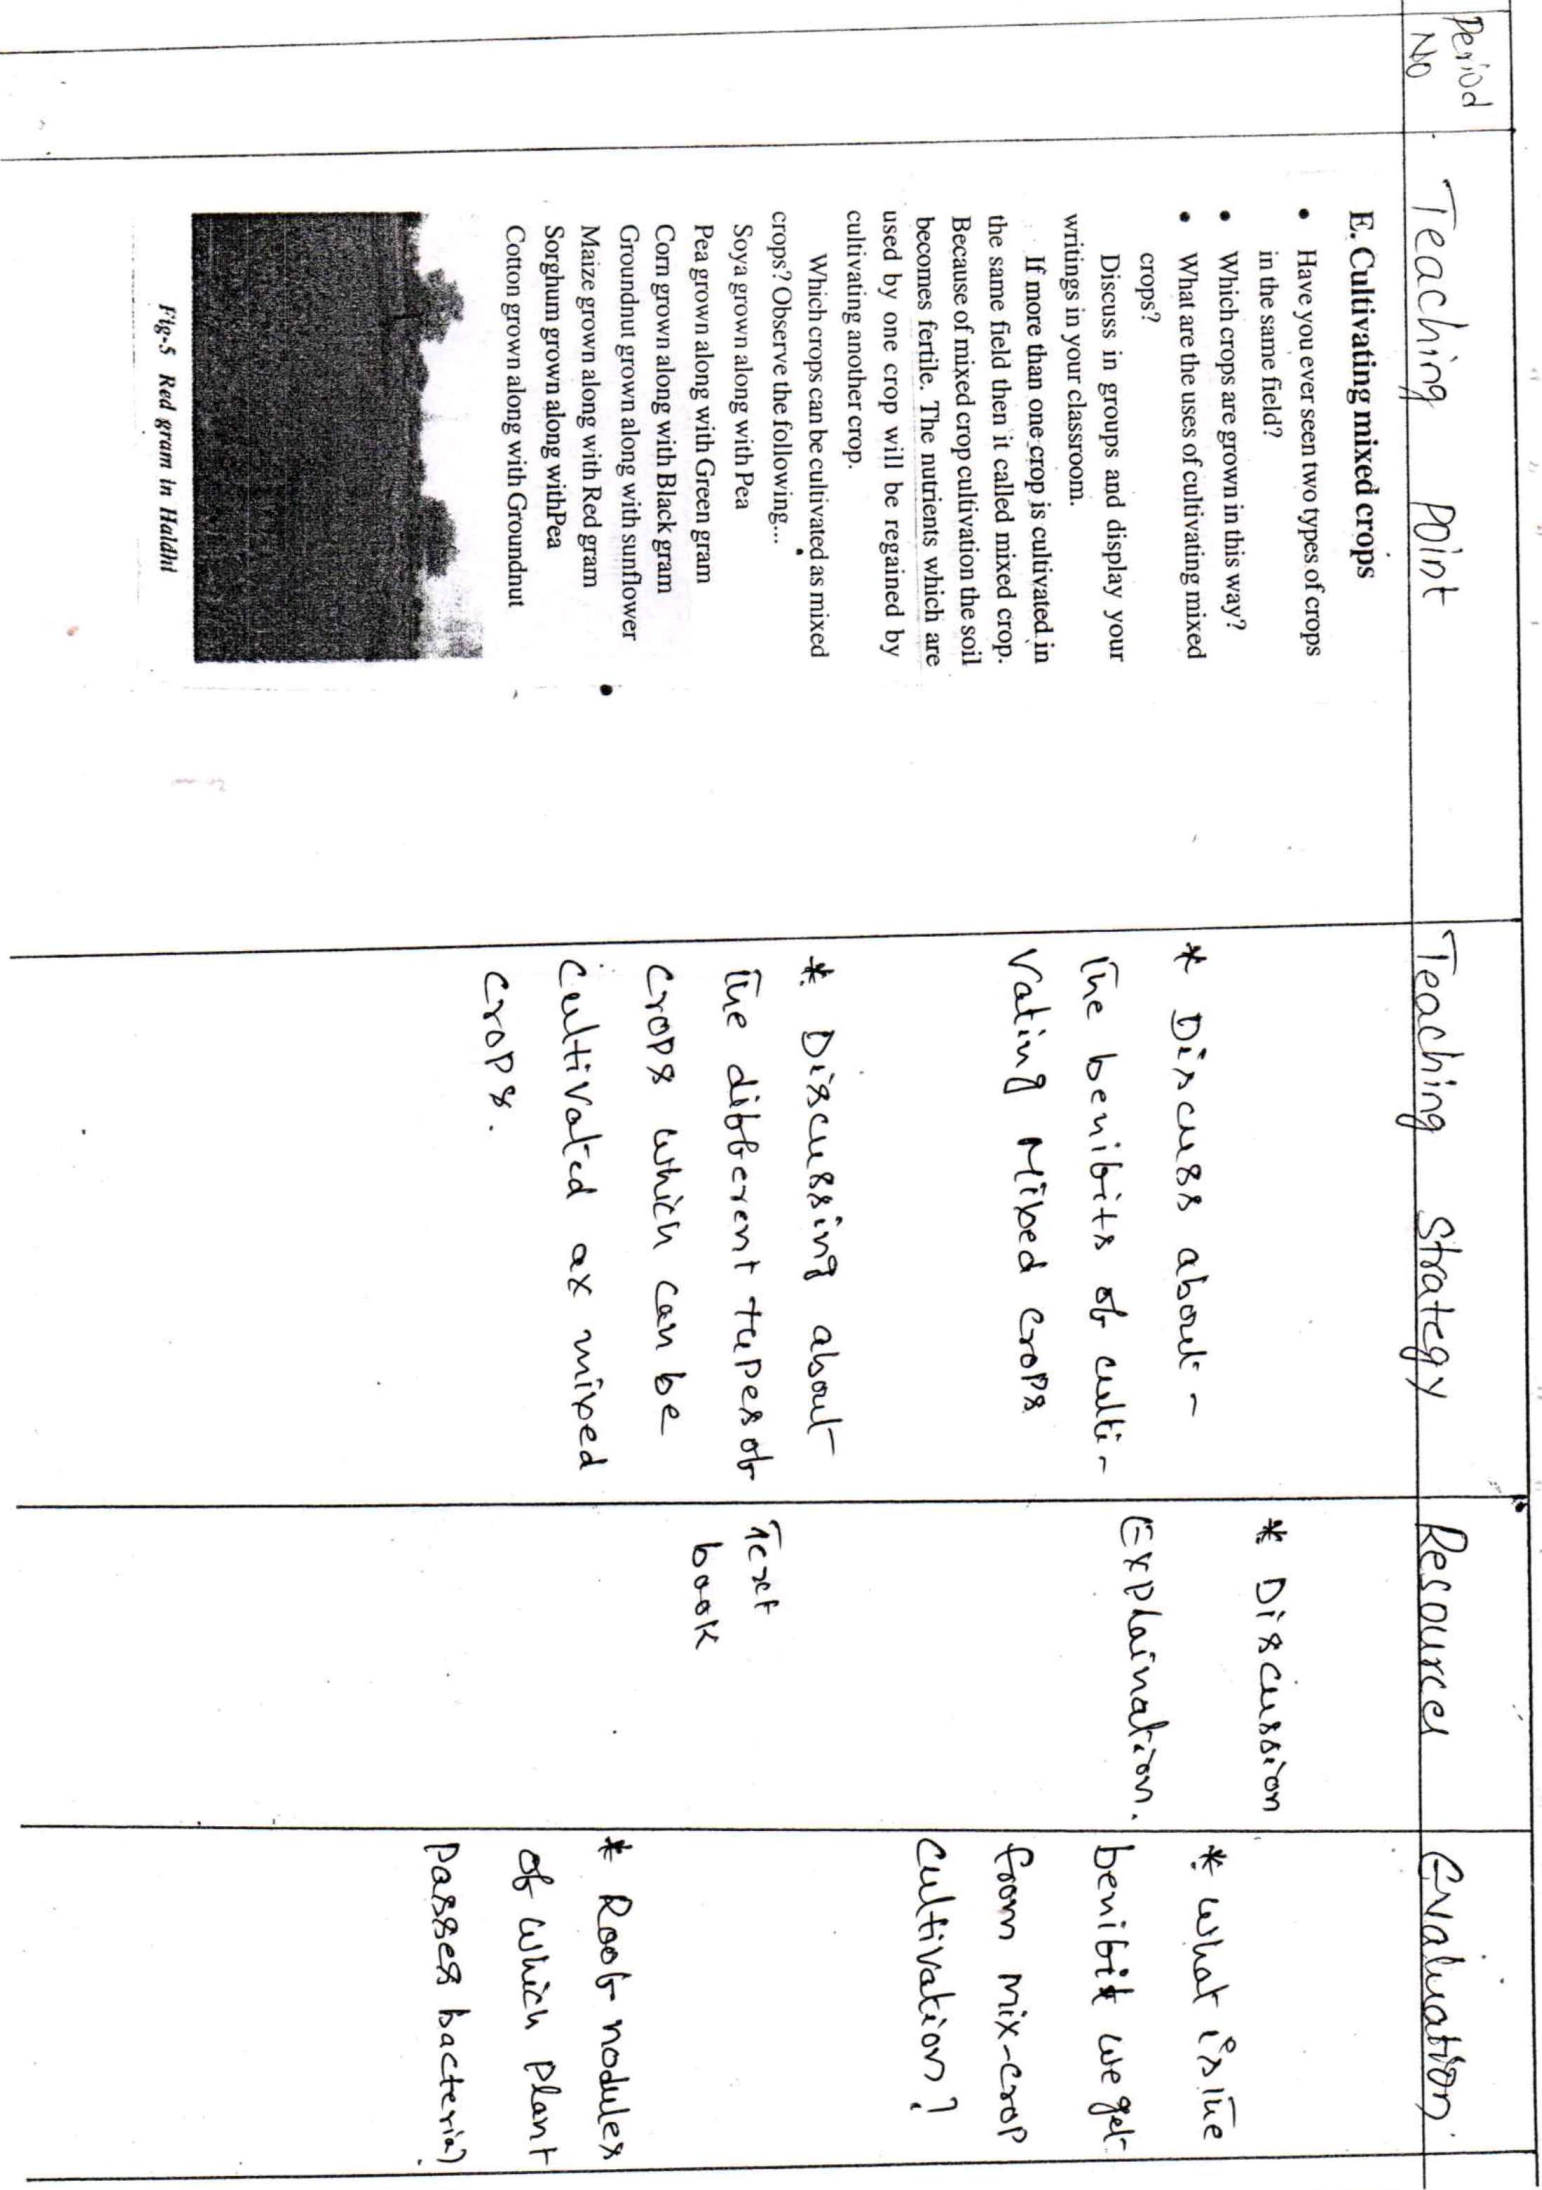 Period
No
Teaching Point
Teaching Strategy
Resources
Evaluation
E. Cultivating mixed crops
• Have you ever seen two types of crops
in the same field?
• Which crops are grown in this way?
• What are the uses of cultivating mixed
crops?
Discuss in groups and display your
writings in your classroom.
If more than one crop is cultivated in
the same field then it called mixed crop.
Because of mixed crop cultivation the soil
becomes fertile. The nutrients which are
used by one crop will be regained by
cultivating another crop.
Which crops can be cultivated as mixed
crops? Observe the following...
Soya grown along with Pea
Pea grown along with Green gram
Corn grown along with Black gram
Groundnut grown along with sunflower
Maize grown along with Red gram
Sorghum grown along withPea
Cotton grown along with Groundnut
Fig-5 Red gram in Haldhi
* Discuss about -
the benifits of culti-
vating Mixed crops
* Discussing about
the different types of
crops which can be
cultivated as mixed
crops.
* Discussion
Explaination.
Text
book
* What is the
benifit we get
from mix-crop
cultivation?
* Root nodules
of which plant
passes bacteria?